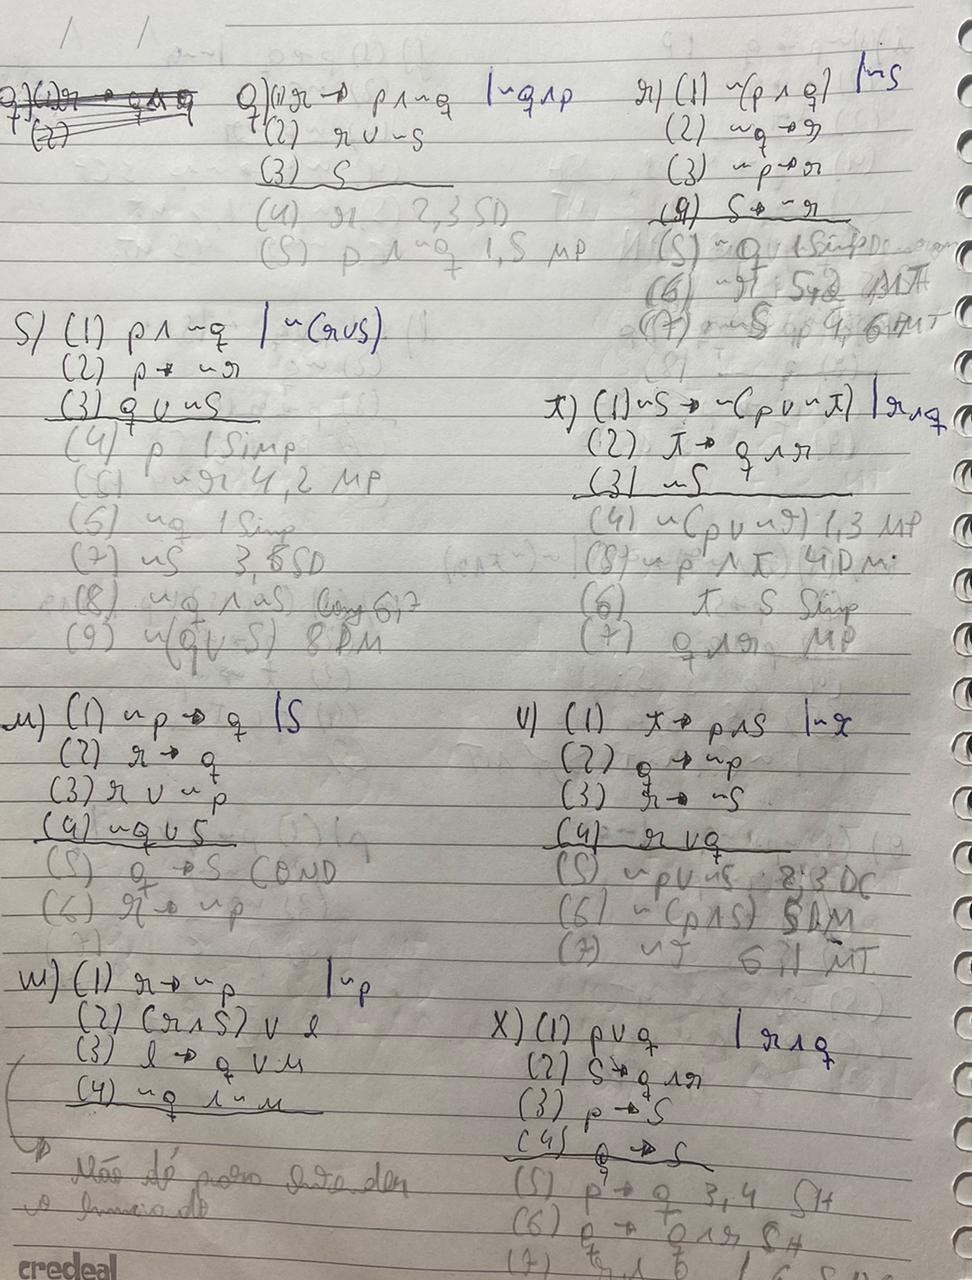 q) (1) r → p ∧ ~q | ~q ∧ p
(2) r ∨ ~s
(3) s
(4) r 2,3 SD
(5) p ∧ ~q 1,5 MP
r) (1) ~(p ∧ q) | ~s
(2) ~q → r
(3) ~p → r
(4) s → ~r
(5) ~q 1 Simp
(6)
(7) ~s 4, 6 MT
s) (1) p ∧ ~q | ~(r ∨ s)
(2) p → ~r
(3) q ∨ ~s
(4) p 1 Simp
(5) ~r 4,2 MP
(6) ~q 1 Simp
(7) ~s 3,6 SD
(8) ~q ∧ ~s Conj 6,7
(9) ~(q ∨ s) 8 DM
t) (1) ~s → ~(p ∨ ~t) | r ∧ q
(2) t → q ∧ r
(3) ~s
(4) ~(p ∨ ~t) 1,3 MP
(5) ~p ∧ t 4 DM
(6) t 5 Simp
(7) q ∧ r MP
u) (1) ~p → q | s
(2) r → q
(3) r ∨ ~p
(4) ~q ∨ s
(5) q → s COND
(6) r → ~p
(7)
v) (1) t → p ∧ s | ~t
(2) q → ~p
(3) r → ~s
(4) r ∨ q
(5) ~p ∨ ~s 2,3 DC
(6) ~(p ∧ s) 5 DM
(7) ~t 6,1 MT
w) (1) r → ~p | ~p
(2) (r ∧ s) ∨ l
(3) l → q ∨ u
(4) ~q ∧ ~u
Não dá para entender
o enunciado
x) (1) p ∨ q | r ∧ q
(2) s → q ∧ r
(3) p → s
(4) q → s
(5) p → q 3,4 SH
(6) q → q ∧ r SH
(7)
credeal